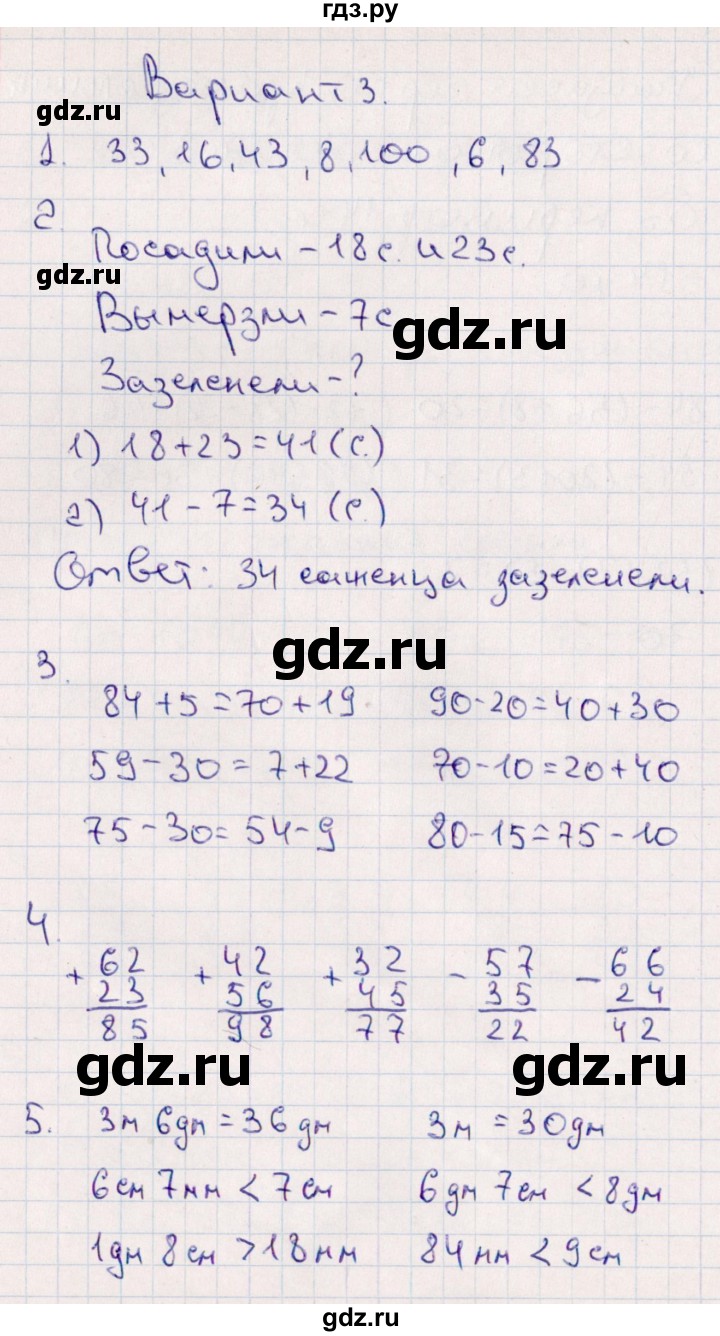 гдз.ру
Вариант 3.
gdz.ru
1. 33, 16, 43, 8, 100, 6, 83
2.
Посадили - 18 с. и 23 с.
gdz.ru
Вымерзли - 7 с
gdz.ru
Зазеленели - ?
1) 18 + 23 = 41 (с.)
2) 41 - 7 = 34 (с.)
Ответ: 34 саженца зазеленели.
gdz.ru
3.
84 + 5 = 70 + 19 90 - 20 = 40 + 30
59 - 30 = 7 + 22 70 - 10 = 20 + 40
75 - 30 = 54 - 9 80 - 15 = 75 - 10
4.
+ 62 + 42 + 32 - 57 - 66
23 56 45 35 24
85 98 77 22 42
gdz.ru gdz.ru
5. 3м 6дм = 36 дм 3м = 30дм
6см 7мм < 7см 6дм 7см < 8дм
1дм 8см > 18мм 84мм < 9см
gdz.ru